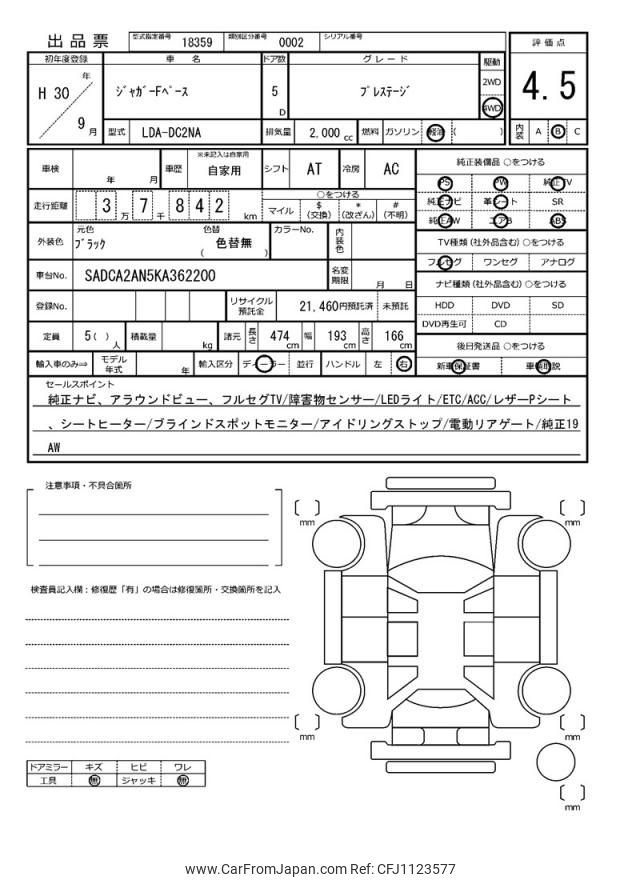 出品票
型式指定番号 18359 類別区分番号 0002 シリアル番号
初年度登録 車名 ドア数 グレード 駆動 評価点
H 30 年 9 月 ジャガーFペース 5 D プレステージ 2WD 4WD 4.5
型式 LDA-DC2NA 排気量 2,000 cc 燃料 ガソリン 軽油 ( ) 内装 A B C
車検 年 月 車歴 ※未記入は自家用 自家用 シフト AT 冷房 AC
走行距離 3 万 7 千 8 4 2 km
○をつける
マイル $ (交換) * (改ざん) # (不明)
外装色 元色 ブラック 色替 ( 色替無 ) カラーNo. 内装色
車台No. SADCA2AN5KA362200 名変期限 月 日
登録No. リサイクル預託金 21,460円預託済 未預託
定員 5( ) 人 積載量 kg 諸元 長さ 474 cm 幅 193 cm 高さ 166 cm
輸入車のみ⇒ モデル年式 年 輸入区分 ディーラー 並行 ハンドル 左 右
純正装備品 ○をつける
PS PW 純正TV
純正ナビ 革シート SR
純正AW エアB ABS
TV種類 (社外品含む) ○をつける
フルセグ ワンセグ アナログ
ナビ種類 (社外品含む) ○をつける
HDD DVD SD
DVD再生可 CD
後日発送品 ○をつける
新車保証書 車輌取説
セールスポイント
純正ナビ、アラウンドビュー、フルセグTV/障害物センサー/LEDライト/ETC/ACC/レザーPシート
、シートヒーター/ブラインドスポットモニター/アイドリングストップ/電動リアゲート/純正19
AW
注意事項・不具合箇所
検査員記入欄：修復歴「有」の場合は修復箇所・交換箇所を記入
ドアミラー キズ ヒビ ワレ
工具 無 ジャッキ 無
mm
mm
mm
mm
mm
www.CarFromJapan.com Ref: CFJ1123577